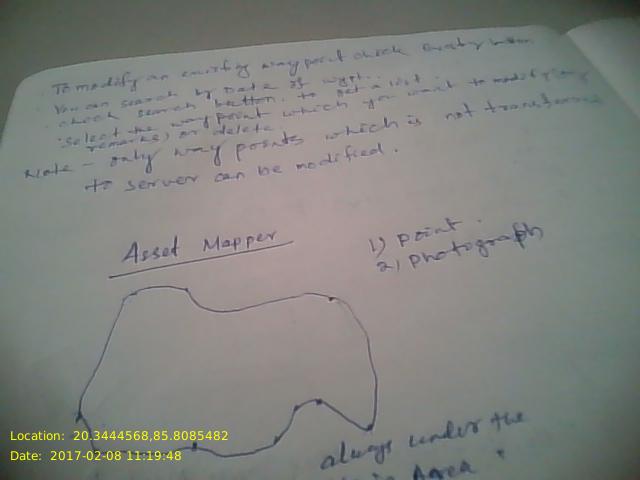 To modify an existing way point check modify button
You can search by Date of wypt..
check search button. to get a list.
Select the way point which you want to modify any
remarks, or delete.
Note - only way points which is not transferred
to server can be modified.
Asset Mapper
1) point.
2) photograph
always under the
Area "
Location: 20.3444568,85.8085482
Date: 2017-02-08 11:19:48